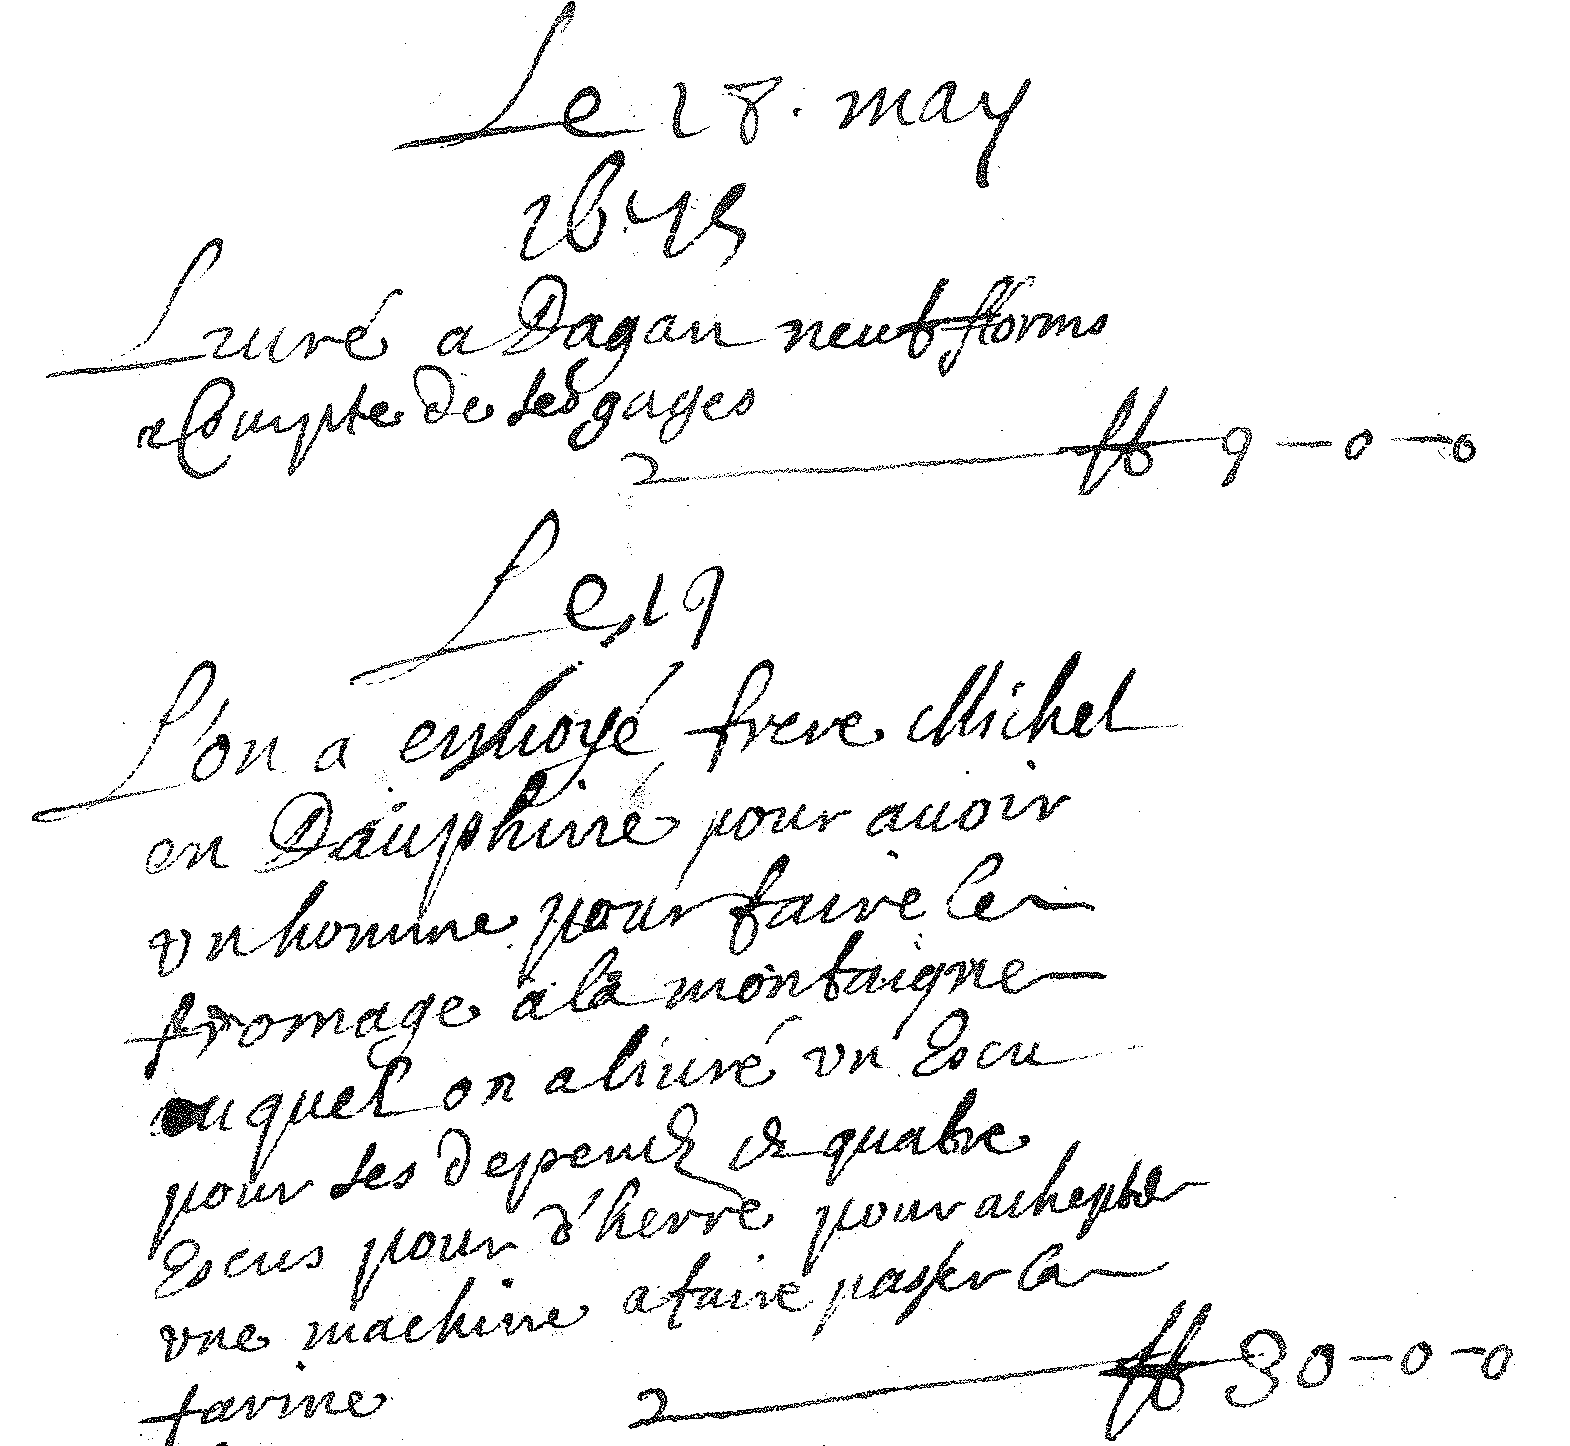 Le 18. may
1645
Liuré a Dagan neuf florins
a Compte de ses gages
2 ff 9-0-0
Le, 19
L'on a enuoyé frere Michel
en Dauphiné pour auoir
vn homme pour faire le
fromage a la montaigne
auquel on a liuré vn Escu
pour ses depends & quatre
Escus pour d'herre pour achepter
vne machine a faire passer la
farine 2 ff 30-0-0